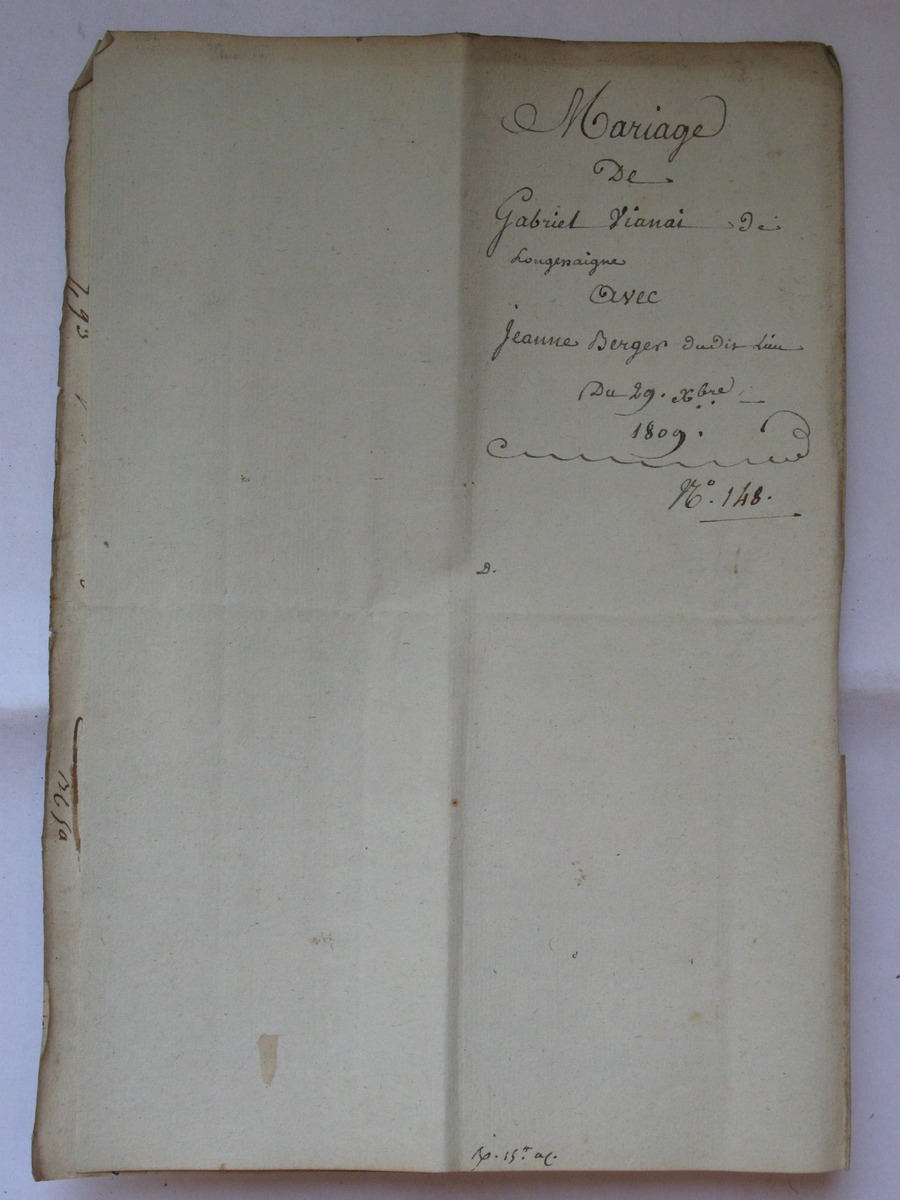 Mariage
De
Gabriel Vianai de
Longessaigne
avec
Jeanne Berger dudit Lieu
Du 29. Xbre
1809.
N°. 148.
D.